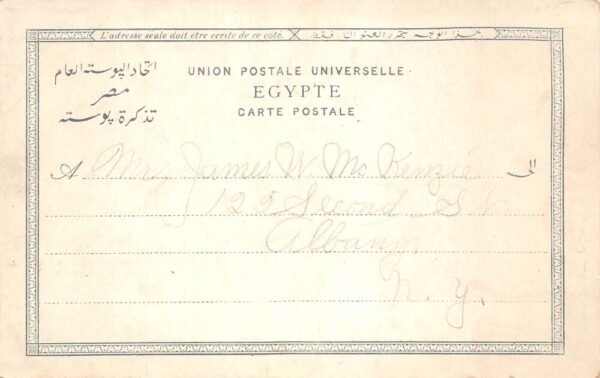 L'adresse seule doit être écrite de ce côté.
بهذا الوجه يحرر العنوان فقط
اتحاد البوسته العام
مصر
تذكرة بوسته
UNION POSTALE UNIVERSELLE.
EGYPTE
CARTE POSTALE
A Mr. James W. McKenzie الى
123 Second St
Albany,
N. Y.